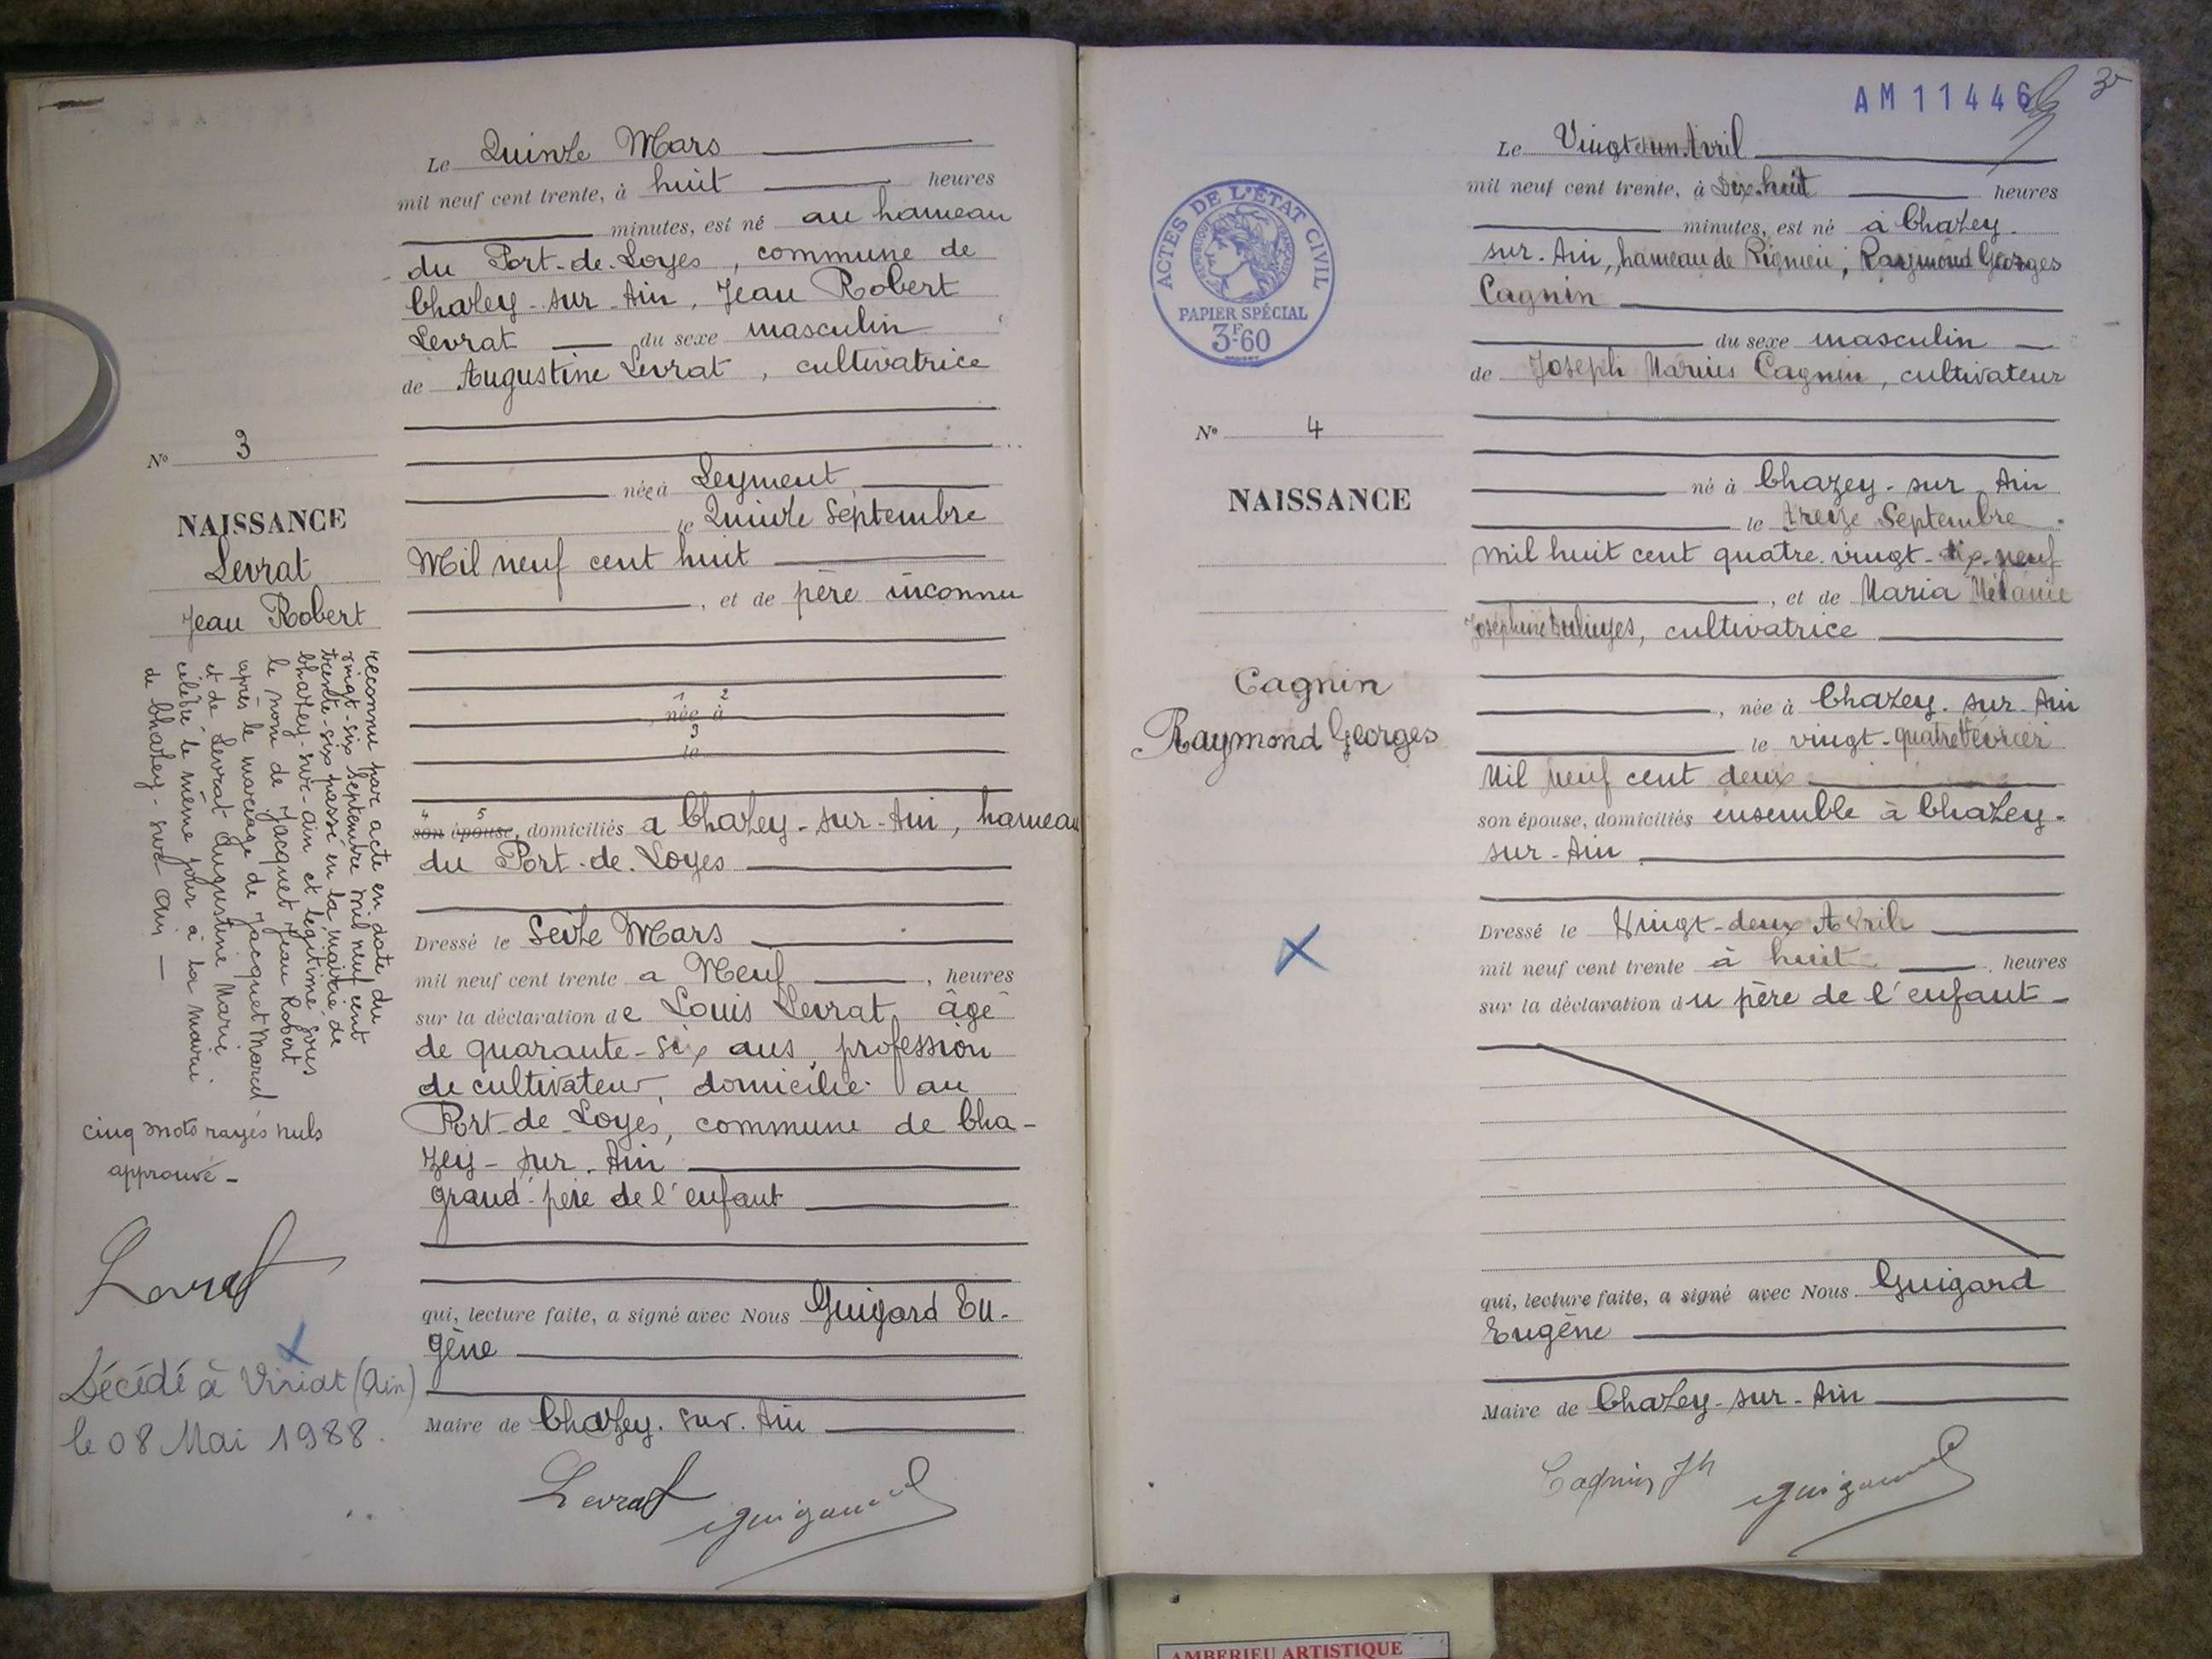 Le Quinze Mars
mil neuf cent trente, à huit heures
minutes, est né au hameau
du Port-de-Loyes, commune de
Chazey-sur-Ain, Jean Robert
Levrat du sexe masculin
de Augustine Levrat, cultivatrice
née à Leyment
le Quinze Septembre
Mil neuf cent huit
, et de père inconnu
1 2
, née à
3
le
4 5
son épouse, domiciliés a Chazey-sur-Ain, hameau
du Port-de-Loyes
Dressé le Seize Mars
mil neuf cent trente a Neuf, heures
sur la déclaration de Louis Levrat, âgé
de quarante-six ans, profession
de cultivateur, domicilié au
Port-de-Loyes, commune de Cha-
zey-sur-Ain
grand-père de l'enfant
qui, lecture faite, a signé avec Nous Guigard Eu-
gène
Maire de Chazey-sur-Ain
Levrat Guigard
N° 3
NAISSANCE
Levrat
Jean Robert
reconnu par acte en date du
vingt-six septembre mil neuf cent
trente-six passé en la mairie de
Chazey-sur-Ain et légitimé sous
le nom de Jacquet Jean Robert
après le mariage de Jacquet Marcel
et de Levrat Augustine Marie
célébré le même jour à la mairie
de Chazey-sur-Ain
cinq mots rayés nuls
approuvé
Levrat
Décédé à Viriat (Ain)
le 08 Mai 1988.
AM 11446
3
ACTES DE L'ÉTAT CIVIL
RÉPUBLIQUE FRANÇAISE
PAPIER SPÉCIAL
3F60
Le Vingt et un Avril
mil neuf cent trente, à Dix-huit heures
minutes, est né à Chazey-
sur-Ain, hameau de Rignieu, Raymond Georges
Cagnin
du sexe masculin
de Joseph Marius Cagnin, cultivateur
né à Chazey-sur-Ain
le treize Septembre
mil huit cent quatre-vingt-dix-neuf
, et de Maria Mélanie
Joséphine, cultivatrice
, née à Chazey-sur-Ain
le vingt-quatre Février
Mil neuf cent deux
son épouse, domiciliés ensemble à Chazey-
sur-Ain
Dressé le Vingt-deux Avril
mil neuf cent trente à huit, heures
sur la déclaration du père de l'enfant
qui, lecture faite, a signé avec Nous Guigard
Eugène
Maire de Chazey-sur-Ain
Cagnin Jh Guigard
N° 4
NAISSANCE
Cagnin
Raymond Georges
AMBERIEU ARTISTIQUE